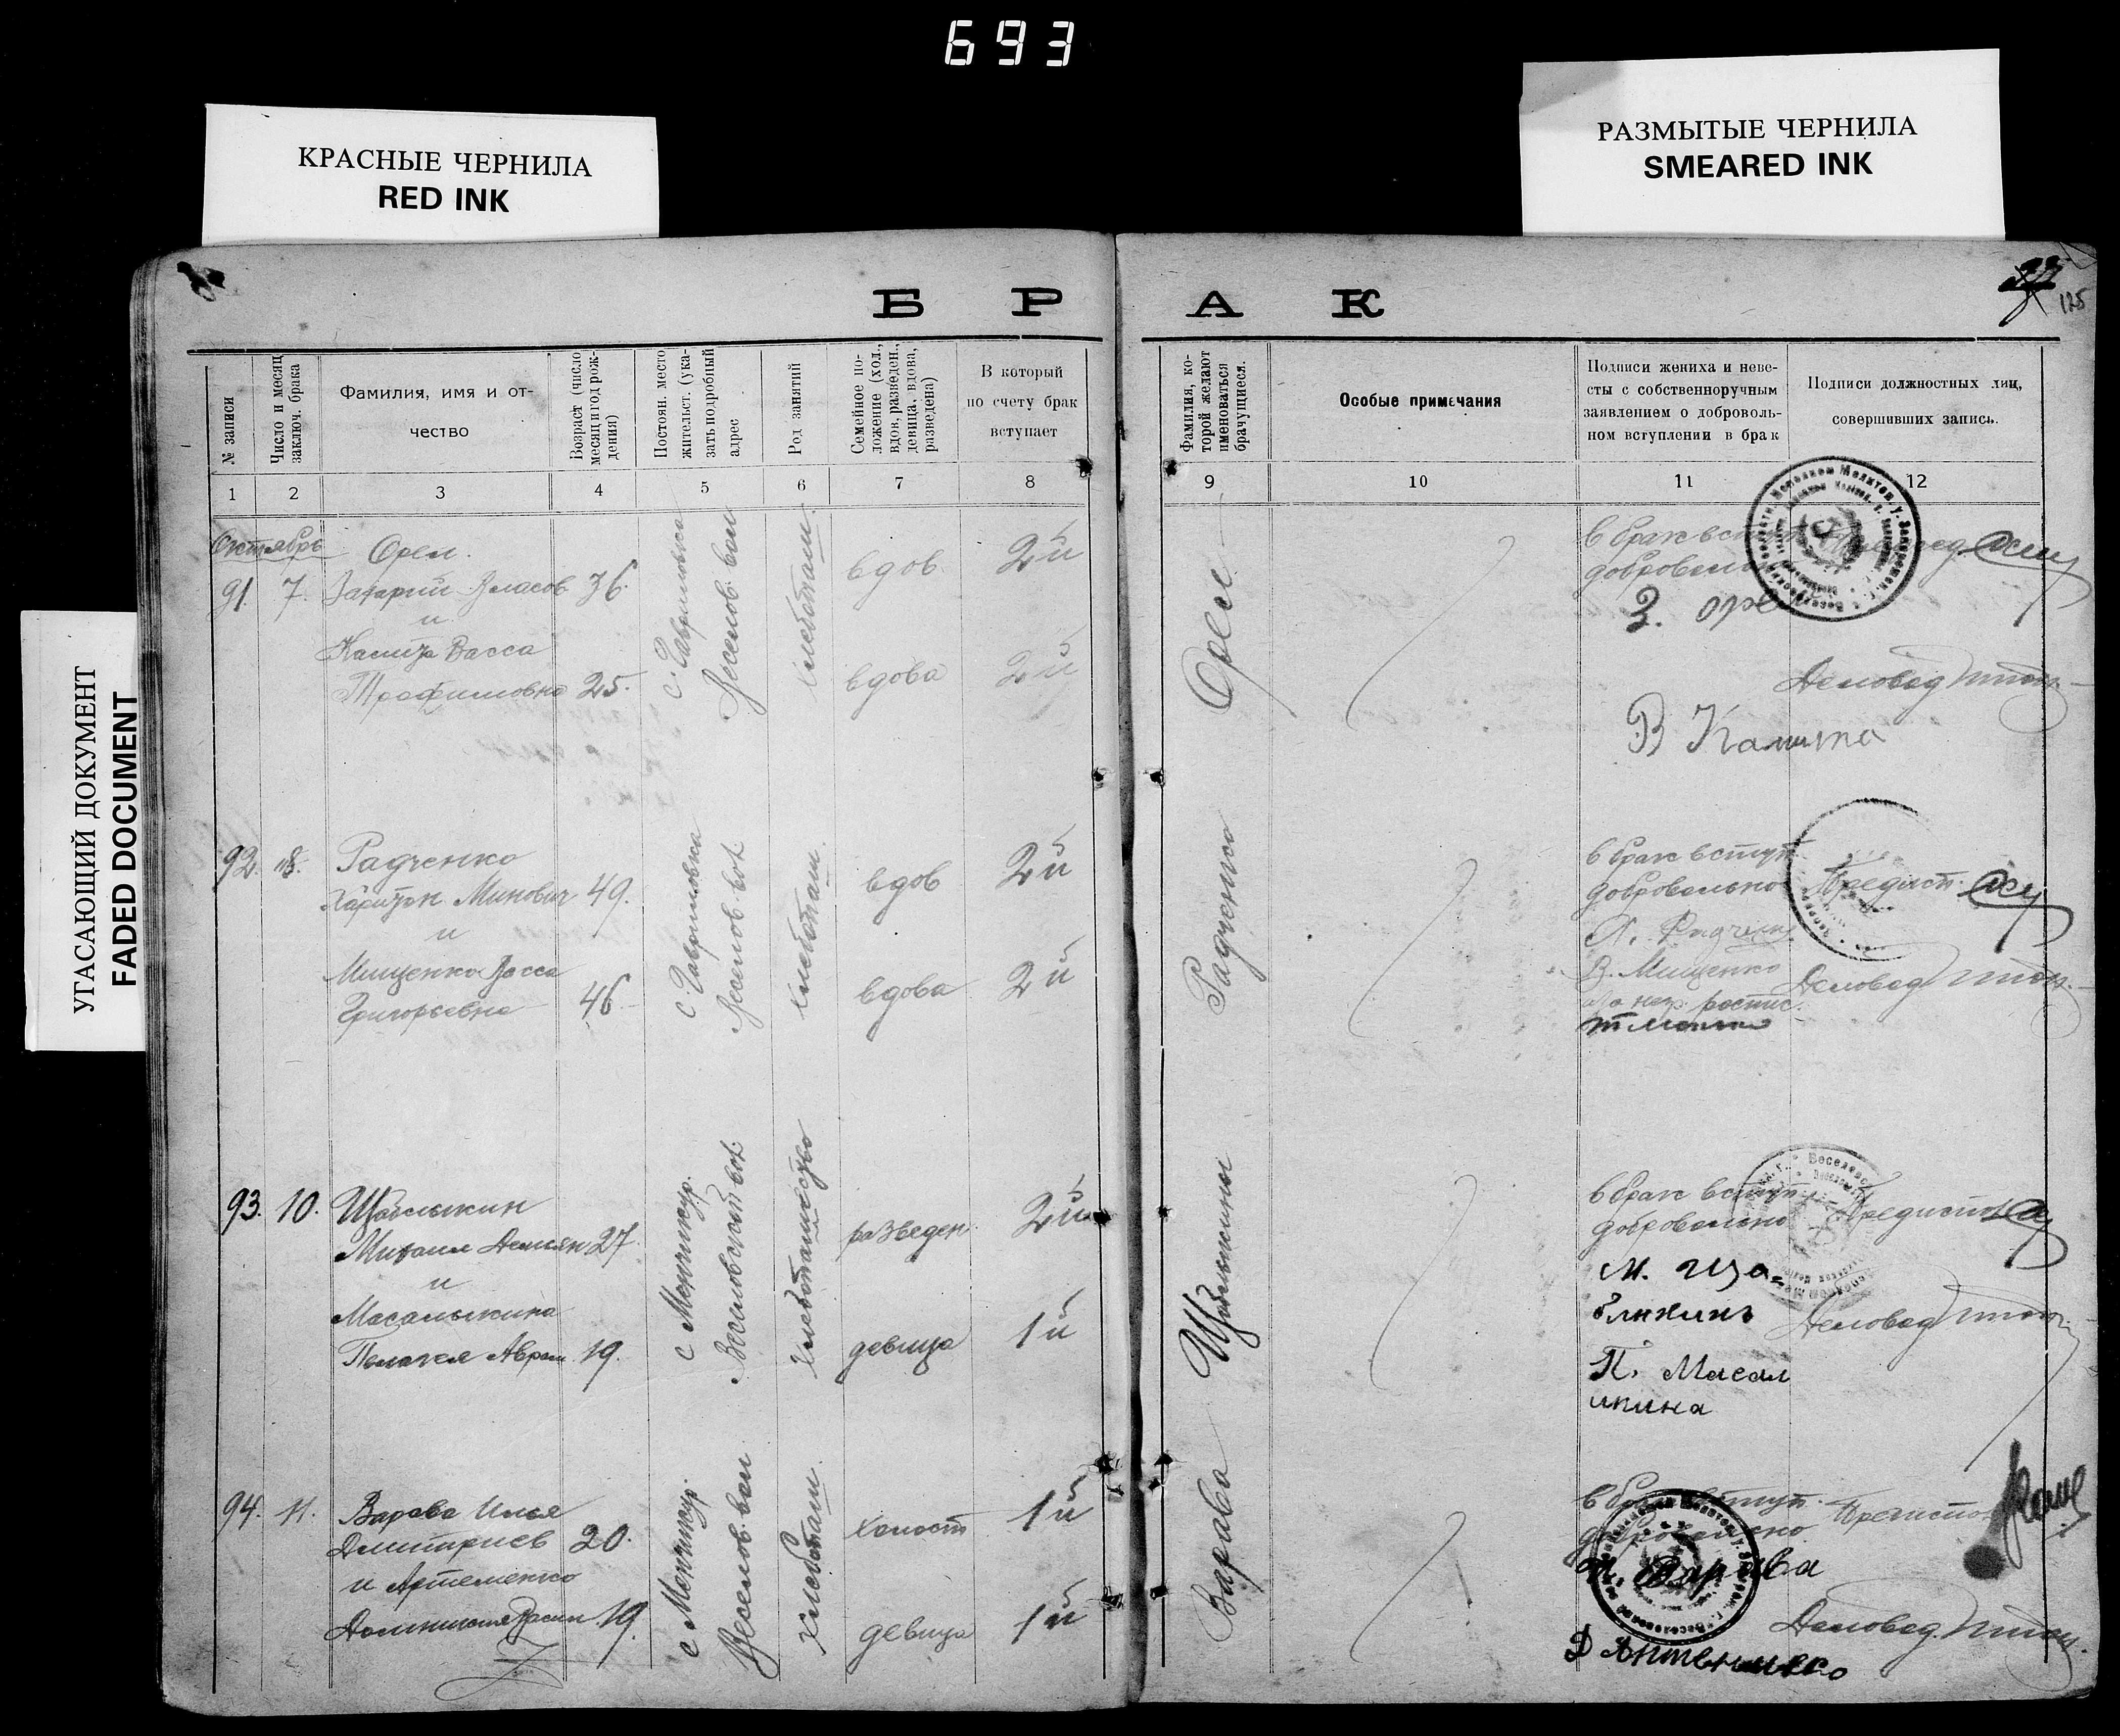 693
КРАСНЫЕ ЧЕРНИЛА
RED INK
РАЗМЫТЫЕ ЧЕРНИЛА
SMEARED INK
УГАСАЮЩИЙ ДОКУМЕНТ
FADED DOCUMENT
БРАК
125
№ записи
Число и месяц
заключ. брака
Фамилия, имя и от-
чество
Возраст (число
месяц и год рож-
дения)
Постоян. место
жительст. (ука-
зать подробный
адрес
Род занятий
Семейное по-
ложение (хол.,
вдов, разведен.,
девица, вдова,
разведена)
В который
по счету брак
вступает
Фамилия, ко-
торой желают
именоваться
брачущиеся.
Особые примечания
Подписи жениха и неве-
сты с собственноручным
заявлением о доброволь-
ном вступлении в брак
Подписи должностных лиц,
совершивших запись.
1 2 3 4 5 6 7 8 9 10 11 12
Октябрь
91. 7.
Орел.
Захарий Власов 36.
и
Калита Васса
Трофимовна 25.
с. Гавриловка
Веселов. вол
хлебопаш.
вдов 2й
вдова 2й
Орел
в брак вступ
добровольно
З. Оре
В Калита
Деловод
92. 8.
Радченко
Харитон Минович 49.
и
Мищенко Васса
Григорьевна 46
с. Гавриловка
Веселов. вол.
хлебопаш.
вдов 2й
вдова 2й
Радченко
в брак вступ
добровольно
Х. Радченк
В. Мищенко
Предисп.
Деловод
93. 10.
Щаблыкин
Михаил Демьян. 27.
и
Масалыкина
Пелагея Аврам. 19.
с Менчикур.
Веселовской вол.
хлебопашество
разведен. 2й
девица 1й
Щаблыкины
в брак вступ
добровольно
М. Ща-
блыкинъ
П. Масал
ыкина
Предиспол
Деловод
94. 11.
Варава Илья
Дмитриев 20.
и Артеменко
19.
с Менчикур.
Веселов. вол
хлебопаш.
холост 1й
девица 1й
Варава
в брак вступ.
добровольно
И. Варава
Деловод.